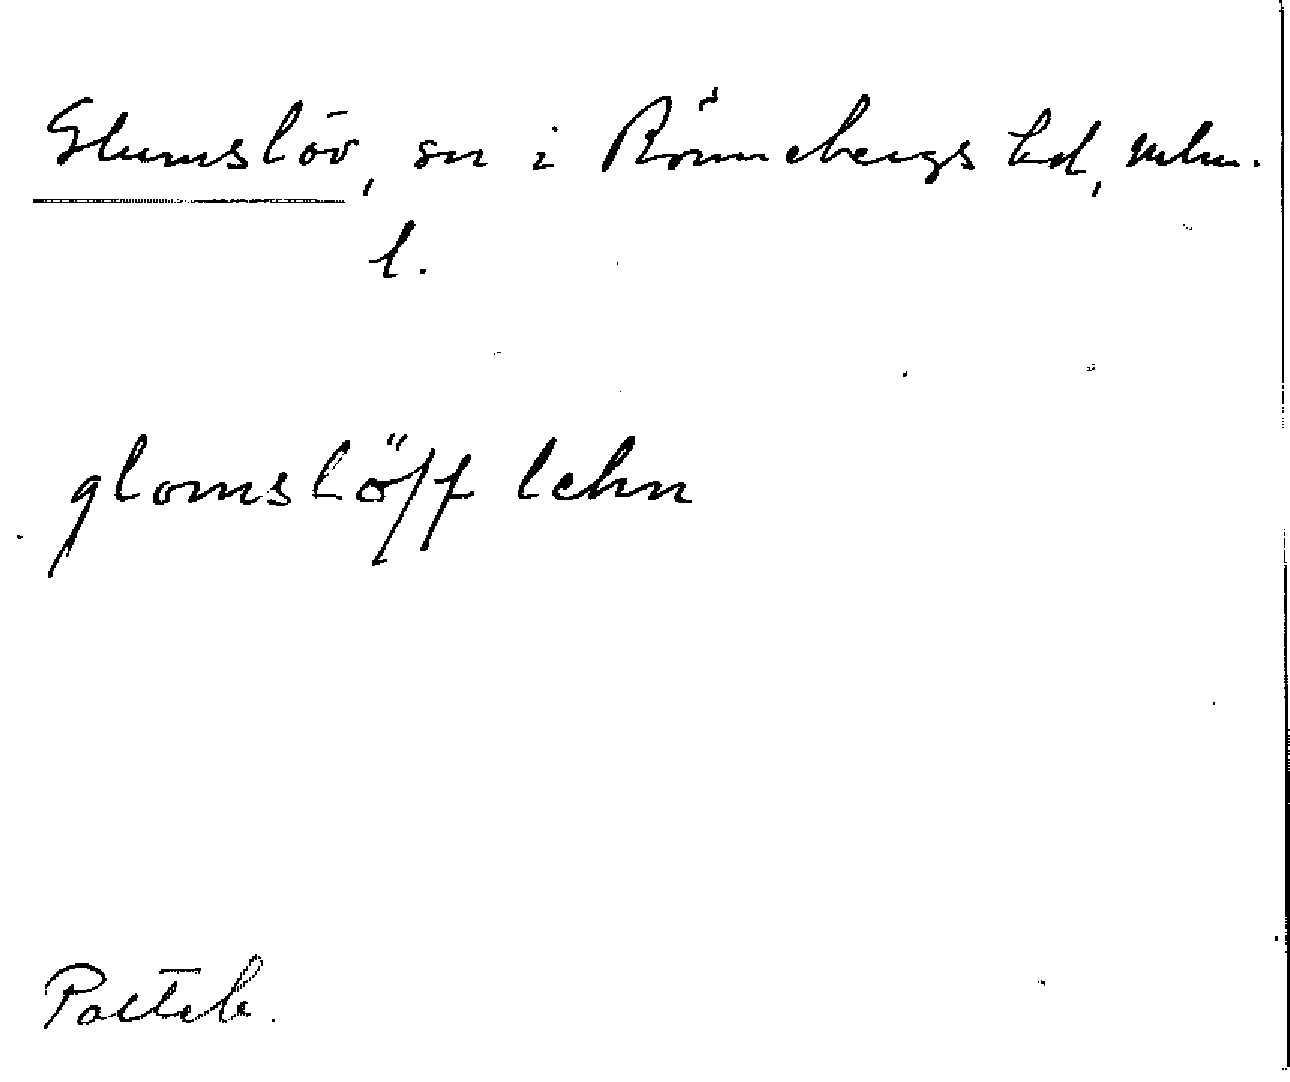 Glumslöv, sn i Rönnebergs hd, Mlm.
l.
glomslöff lehn
Palteb.